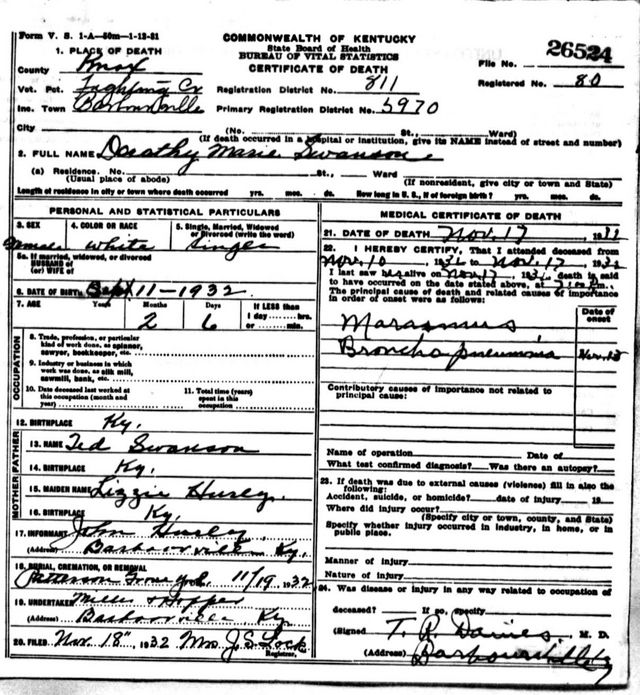 Form V. S. 1-A—50m—1-13-31
COMMONWEALTH OF KENTUCKY
State Board of Health
BUREAU OF VITAL STATISTICS
CERTIFICATE OF DEATH
File No. 26524
Registered No. 80
1. PLACE OF DEATH
County Knox
Vot. Pct. Fighting Cr
Inc. Town Barbourville
Registration District No. 811
Primary Registration District No. 5970
City (No. St., Ward)
(If death occurred in a hospital or institution, give its NAME instead of street and number)
2. FULL NAME Dorathy Marie Swanson
(a) Residence. No. St., Ward
(Usual place of abode) (If nonresident, give city or town and State)
Length of residence in city or town where death occurred yrs. mos. ds. How long in U. S., if of foreign birth? yrs. mos. ds.
PERSONAL AND STATISTICAL PARTICULARS
3. SEX Female
4. COLOR OR RACE White
5. Single, Married, Widowed or Divorced (write the word) Single
5a. If married, widowed, or divorced
HUSBAND of
(or) WIFE of
6. DATE OF BIRTH Sept 11-1932
7. AGE Years Months 2 Days 6 If LESS than
1 day hrs.
or min.
OCCUPATION
8. Trade, profession, or particular
kind of work done, as spinner,
sawyer, bookkeeper, etc.
9. Industry or business in which
work was done, as silk mill,
sawmill, bank, etc.
10. Date deceased last worked at
this occupation (month and
year)
11. Total time (years)
spent in this
occupation
12. BIRTHPLACE Ky.
FATHER
13. NAME Ted Swanson
14. BIRTHPLACE Ky.
MOTHER
15. MAIDEN NAME Lizzie Husley
16. BIRTHPLACE Ky.
17. INFORMANT John Husley
(Address) Barbourville Ky.
18. BURIAL, CREMATION, OR REMOVAL
Patterson Grove 11/19 1932
19. UNDERTAKER Miller & Hopper
(Address) Barbourville, Ky.
20. FILED Nov. 18", 1932 Mrs J. S. Lock
Registrar.
MEDICAL CERTIFICATE OF DEATH
21. DATE OF DEATH Nov. 17
22. I HEREBY CERTIFY, That I attended deceased from
Nov. 10, to Nov. 17
I last saw alive on Nov. 17, death is said
to have occurred on the date stated above, at
The principal cause of death and related causes of importance
in order of onset were as follows:
Date of onset
Marasmus
Broncho pneumonia
Contributory causes of importance not related to
principal cause:
Name of operation Date of
What test confirmed diagnosis? Was there an autopsy?
23. If death was due to external causes (violence) fill in also the
following:
Accident, suicide, or homicide? date of injury 19
Where did injury occur?
(Specify city or town, county, and State)
Specify whether injury occurred in industry, in home, or in
public place.
Manner of injury
Nature of injury
24. Was disease or injury in any way related to occupation of
deceased? If so, specify
(Signed T. R. Davies M. D.
(Address) Barbourville Ky